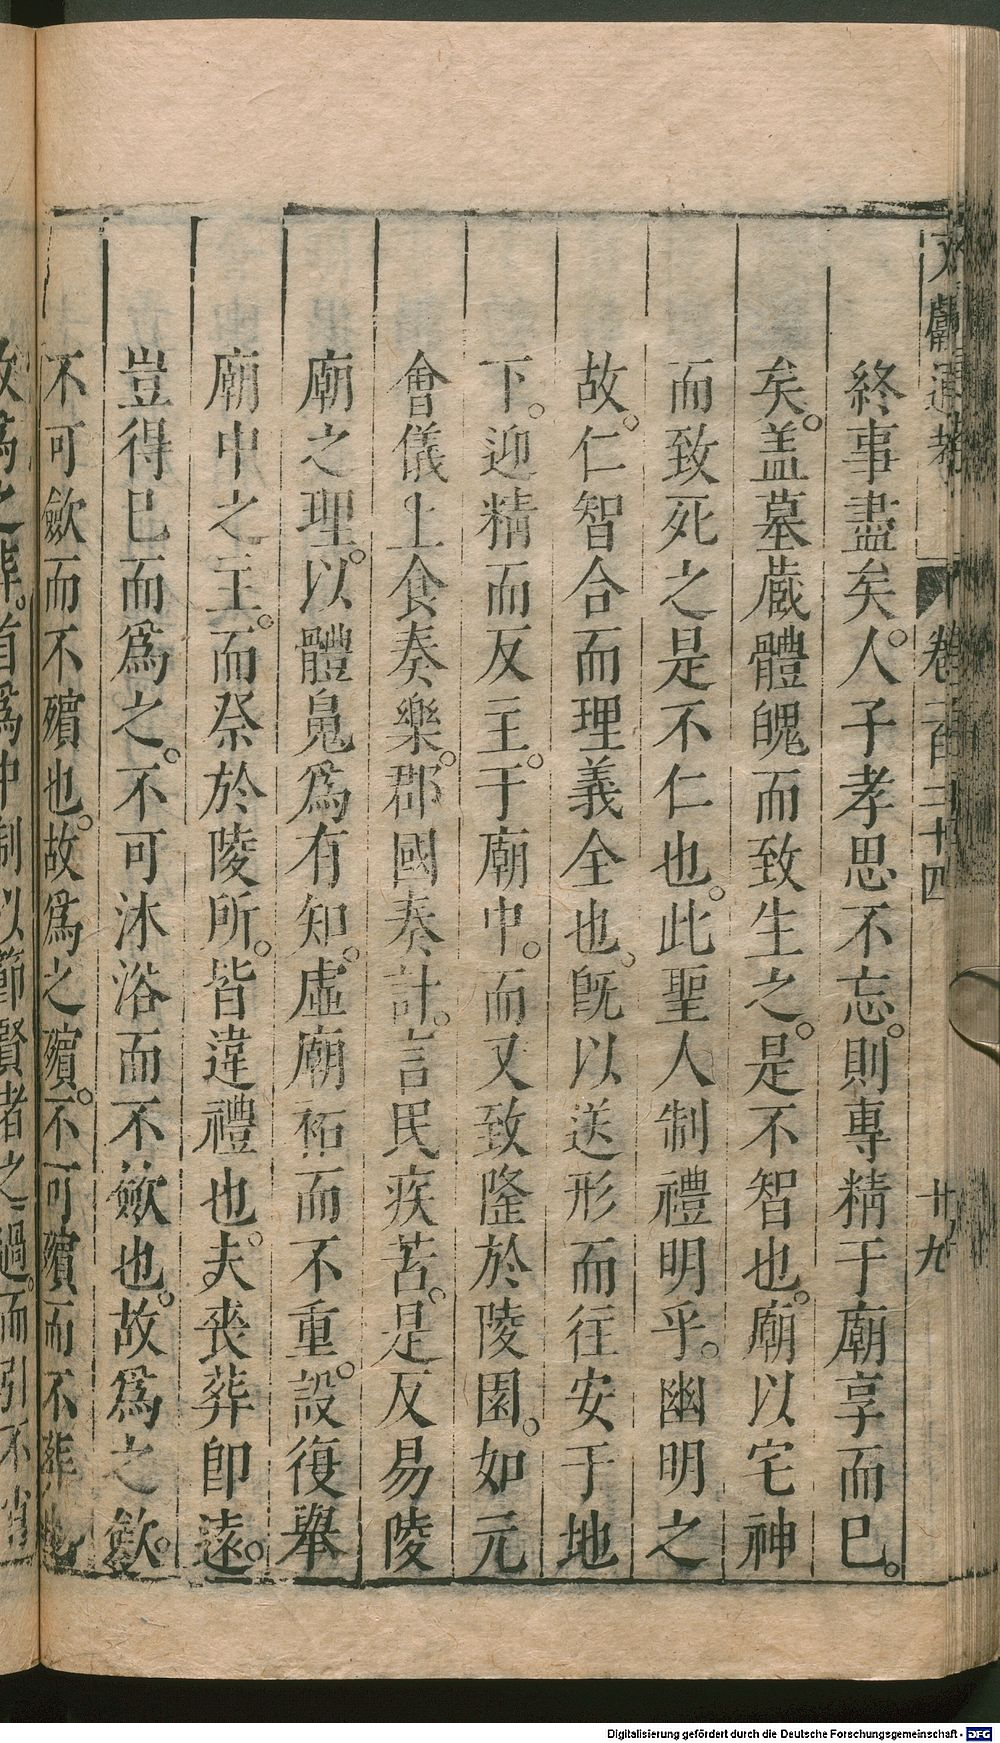 文獻通考 卷一百二十四 十九
終事盡矣。人子孝思不忘。則專精于廟享而巳。
矣。盖墓蔵體魄而致生之。是不智也。廟以宅神
而致死之是不仁也。此聖人制禮明乎。幽明之
故。仁智合而理義全也。旣以送形而往安于地
下。迎精而反主。于廟中。而又致隆於陵園。如元
會儀上食奏樂。郡國奏計。言民疾苦。是反易陵
廟之理。以體鳬爲有知。虛廟祏而不重。設復舉
廟中之主。而祭於陵所。皆違禮也。夫喪葬卽遠。
豈得巳而爲之。不可沐浴而不歛也。故爲之歛。
不可歛而不殯也。故爲之殯。不可殯而不葬也
故爲之葬。首爲中制以節賢者之過。而引不肖
Digitalisierung gefördert durch die Deutsche Forschungsgemeinschaft - DFG